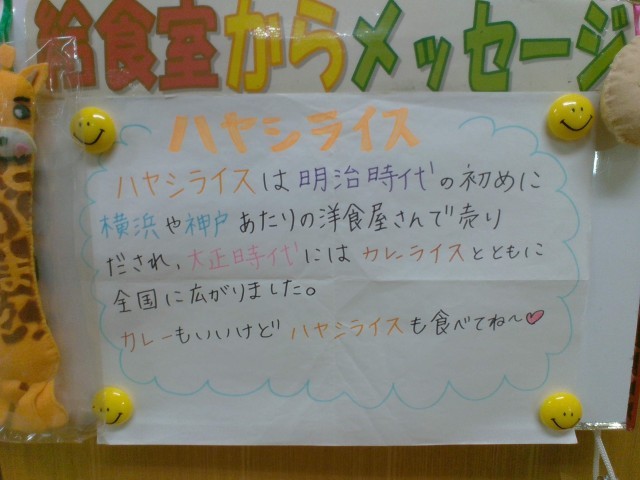 給食室からメッセージ
ハヤシライス
ハヤシライスは明治時代の初めに
横浜や神戸あたりの洋食屋さんで売り
だされ、大正時代にはカレーライスとともに
全国に広がりました。
カレーもいいけどハヤシライスも食べてね〜♥